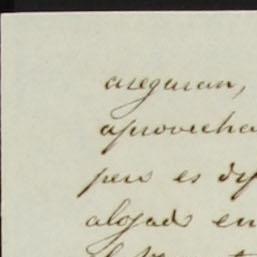 aseguran,
aprovecha
pero es dif
alojado en